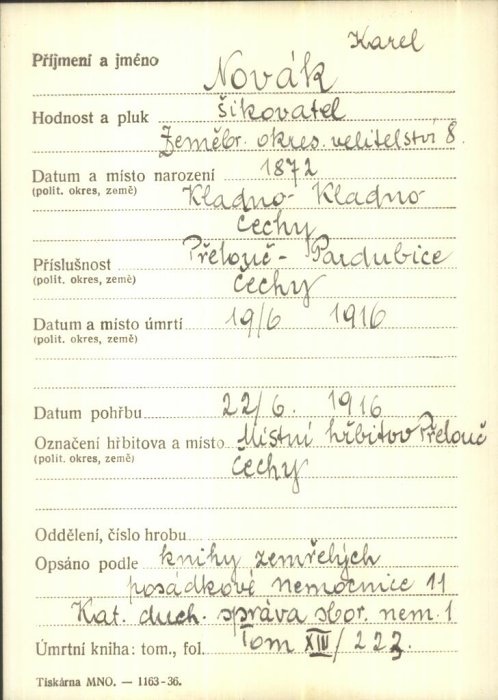 Karel
Příjmení a jméno Novák
Hodnost a pluk šikovatel
Zeměbr. okres. velitelství 8.
Datum a místo narození 1872
(polit. okres, země) Kladno - Kladno
Čechy
Příslušnost Přelouč - Pardubice
(polit. okres, země) Čechy
Datum a místo úmrtí 19/6 1916
(polit. okres, země)
Datum pohřbu 22/6. 1916
Označení hřbitova a místo Místní hřbitov Přelouč
(polit. okres, země) Čechy
Oddělení, číslo hrobu
Opsáno podle knihy zemřelých
posádkové nemocnice 11
Kat. duch. správa sbor. nem. 1
Úmrtní kniha: tom., fol. Tom XIV/223
Tiskárna MNO. — 1163-36.